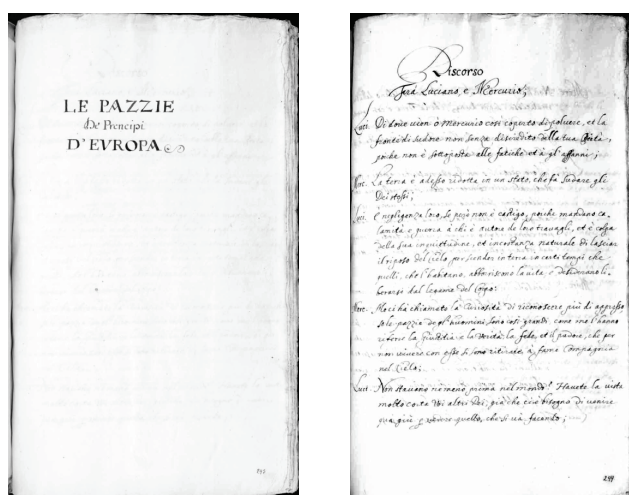 LE PAZZIE
De Prencipi
D'EVROPA
Discorso
Frà Luciano, e Mercurio;
Luci. Di doue uieni ò Mercurio così coperto di poluere, et la
fronte di sudore non senza discredito della tua Deità,
poiche non è sottoposta alle fatiche et à gl'affanni;
Mer. La terra è adesso ridotta in un stato, che fà sudare gli
Dei stessi;
Luci. È negligenza loro, se però non è castigo, poiche mandano ca,
lamità e guerra à chi è autore de loro trauagli, et è colpa
della sua inquietudine, et incostanza naturale di lasciar
il riposo del Cielo per scender in terra in certi tempi che
quelli, che l'habitano, abhoriscono la uita, e desiderano li,
berarsi dal legame del Corpo:
Mer. M'oci hà chiamato la curiosità di riconoscere più di appresso
se le pazzie degl'huomini sono così grandi come me l'hanno
riferito la Giustitia, la Verità, la fede, et il pudore, che per
non uiuere con esse si sono ritirate à farne Compagnia
nel Cielo;
Luci. Non stauano nemeno prima nel mondo! Hauete la uista
molto corta Voi altri Dei, già che c'è bisogno di uenire
qua giù p uedere quello, che si uà facendo;
242
244